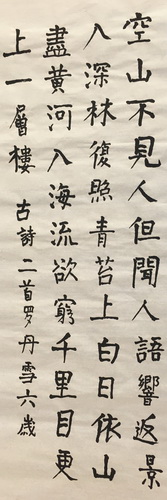 空山不見人但聞人語響返景
入深林復照青苔上白日依山
盡黃河入海流欲窮千里目更
上一層樓 古詩二首罗丹雪六歲